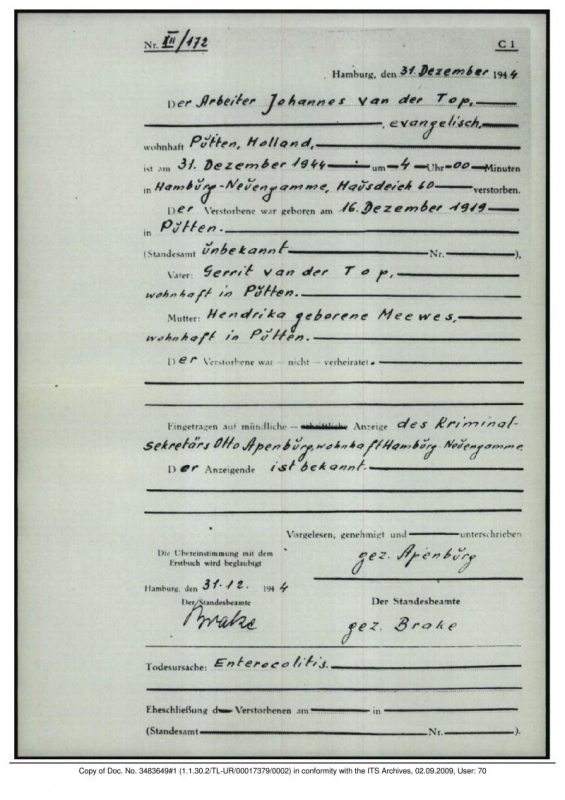 Nr. XII/172
C 1
Hamburg, den 31. Dezember 1944
Der Arbeiter Johannes van der Top,
evangelisch,
wohnhaft Pŭtten, Holland,
ist am 31. Dezember 1944 um 4 Uhr 00 Minuten
in Hambŭrg-Neŭengamme, Haŭsdeich 60 verstorben.
Der Verstorbene war geboren am 16. Dezember 1919
in Pŭtten.
(Standesamt ŭnbekannt Nr. ),
Vater: Gerrit van der Top,
wohnhaft in Pŭtten.
Mutter: Hendrika geborene Meewes,
wohnhaft in Pŭtten.
Der Verstorbene war — nicht — verheiratet.
Eingetragen auf mündliche — schriftliche Anzeige des Kriminal-
sekretärs Otto Apenbŭrg, wohnhaft Hambŭrg-Neŭengamme.
Der Anzeigende ist bekannt.
Vorgelesen, genehmigt und unterschrieben
gez. Apenbŭrg
Die Übereinstimmung mit dem
Erstbuch wird beglaubigt
Hamburg, den 31.12. 1944
Der Standesbeamte
Brake
Der Standesbeamte
gez. Brake
Todesursache: Enterocolitis.
Eheschließung d Verstorbenen am in
(Standesamt Nr. ).
Copy of Doc. No. 3483649#1 (1.1.30.2/TL-UR/00017379/0002) in conformity with the ITS Archives, 02.09.2009, User: 70